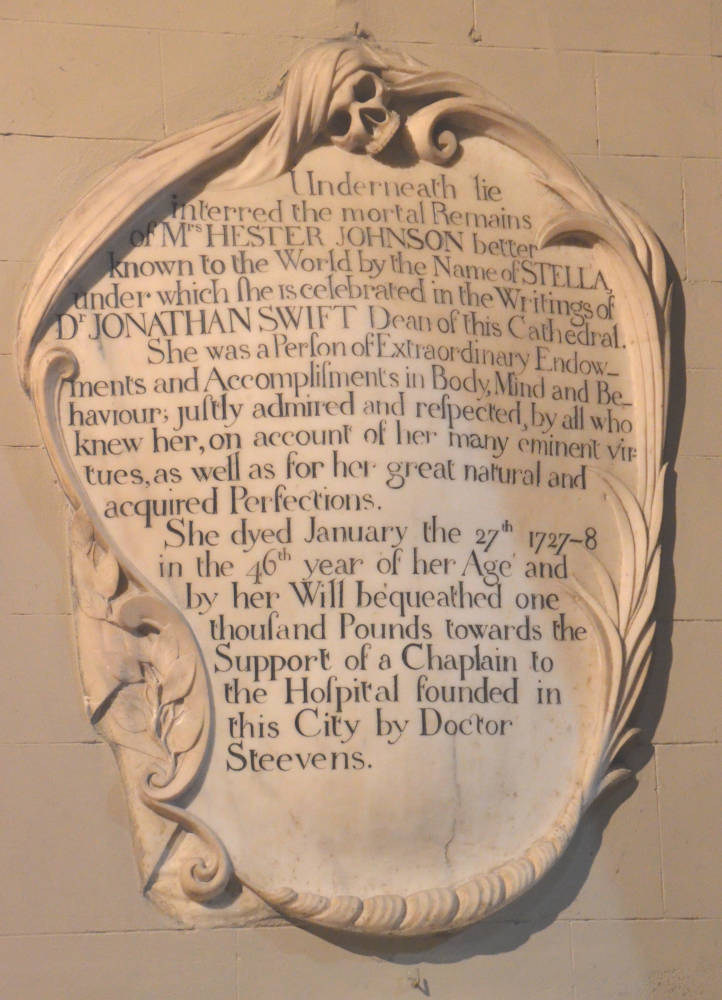 Underneath lie
interred the mortal Remains
of Mrs HESTER JOHNSON better
known to the World by the Name of STELLA,
under which ſhe is celebrated in the Writings of
Dr JONATHAN SWIFT Dean of this Cathedral.
She was a Perſon of Extraordinary Endow-
ments and Accompliſments in Body, Mind and Be-
haviour; juſtly admired and reſpected, by all who
knew her, on account of her many eminent vir-
tues, as well as for her great natural and
acquired Perfections.
She dyed January the 27th 1727-8
in the 46th year of her Age and
by her Will bequeathed one
thouſand Pounds towards the
Support of a Chaplain to
the Hoſpital founded in
this City by Doctor
Steevens.